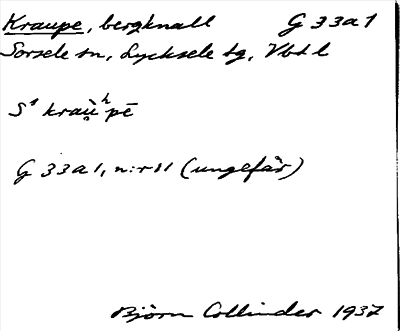 Kraupe, bergknall G 33a1
Sorsele sn, Lycksele tg, Vbd l
S¹ kraù̥ʰpē
G 33a1, n:r 11 (ungefär)
Björn Collinder 1937